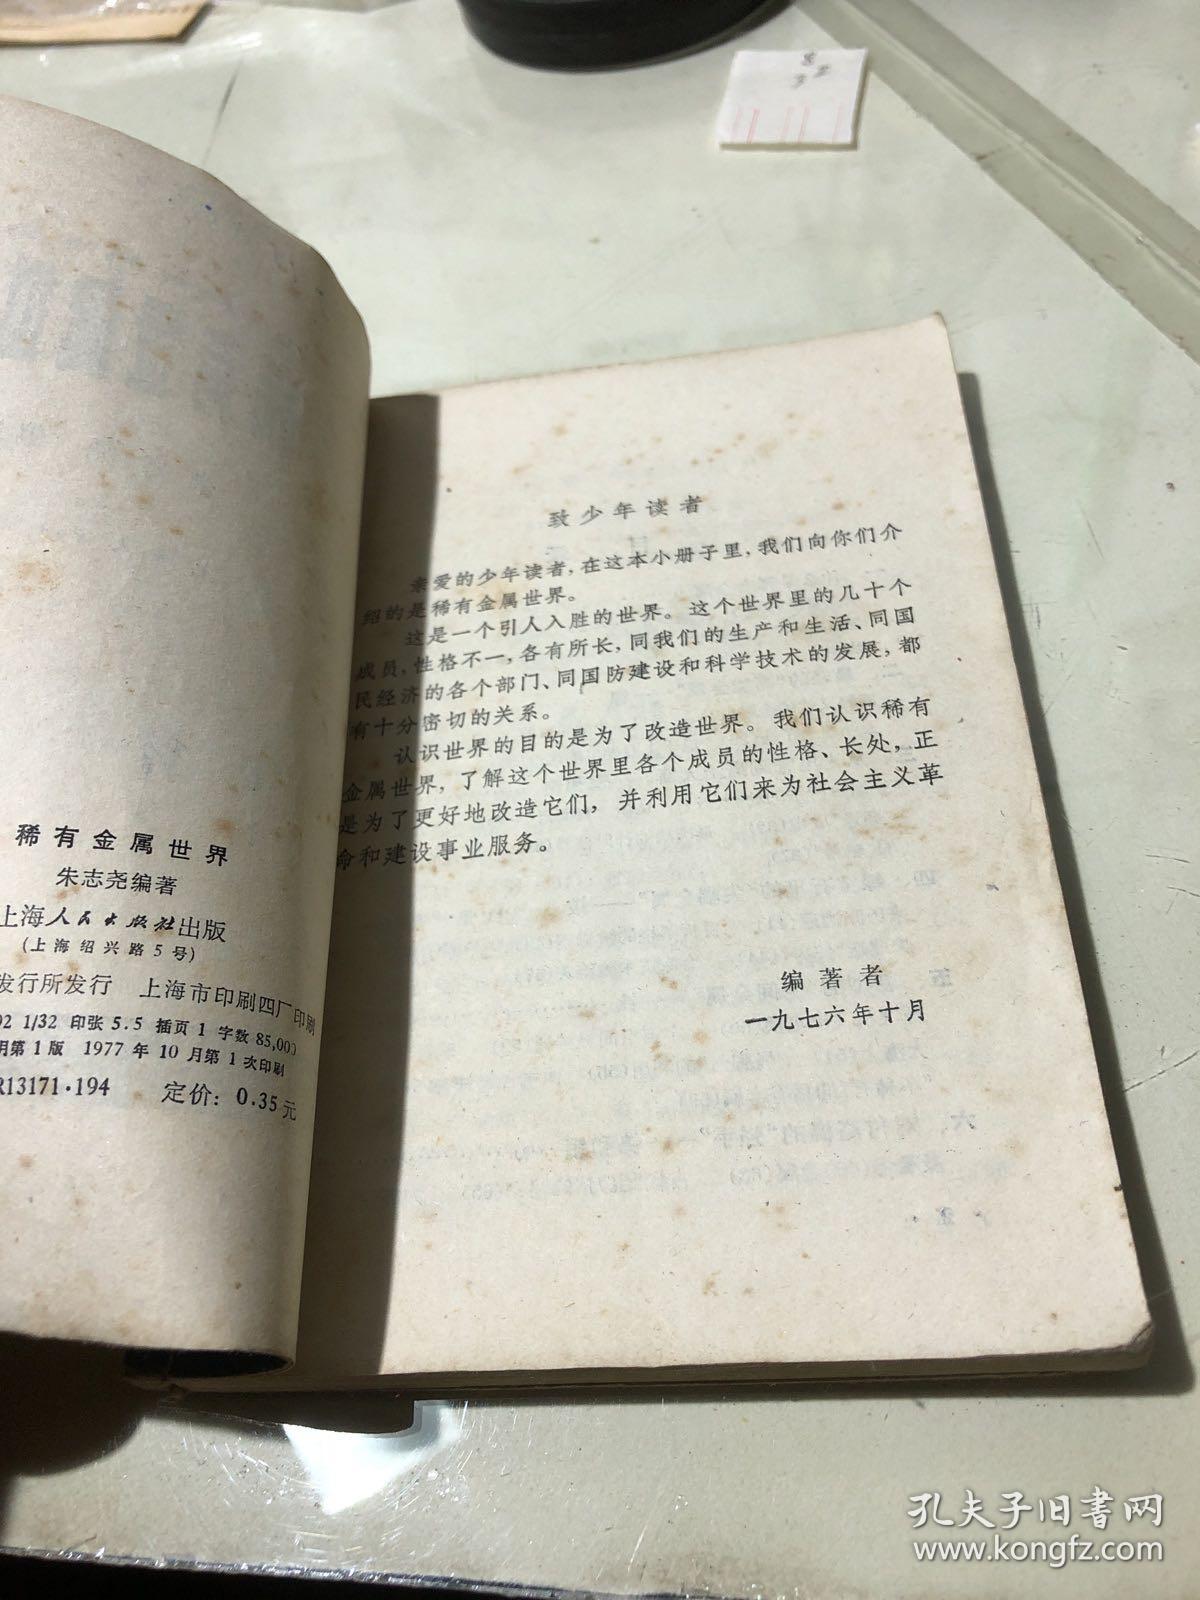 稀有金属世界
朱志尧编著
上海人民出版社出版
(上海绍兴路5号)
发行所发行 上海市印刷四厂印刷
92 1/32 印张 5.5 插页 1 字数 85,000
明第1版 1977年10月第1次印刷
R13171·194 定价: 0.35元
致少年读者
亲爱的少年读者,在这本小册子里,我们向你们介
绍的是稀有金属世界。
这是一个引人入胜的世界。这个世界里的几十个
成员,性格不一,各有所长,同我们的生产和生活、同国
民经济的各个部门、同国防建设和科学技术的发展,都
有十分密切的关系。
认识世界的目的是为了改造世界。我们认识稀有
金属世界,了解这个世界里各个成员的性格、长处,正
是为了更好地改造它们,并利用它们来为社会主义革
命和建设事业服务。
编著者
一九七六年十月
孔夫子旧书网
www.kongfz.com